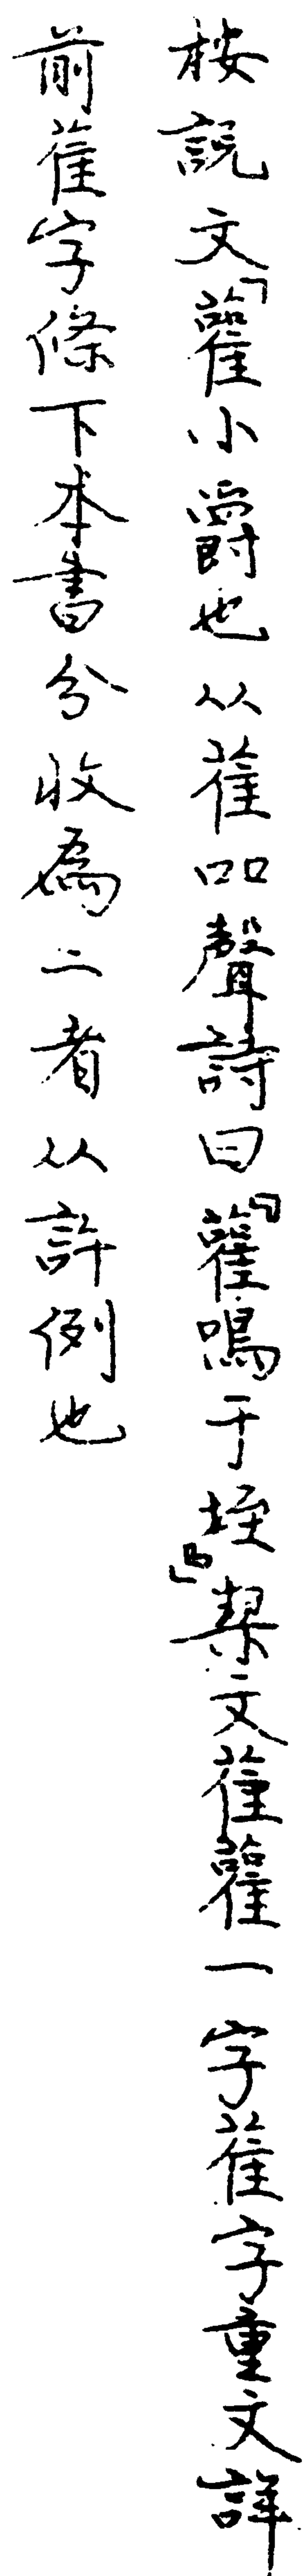 桉説文「雚小爵也从萑吅聲詩曰『雚鳴于垤』」栔文萑雚一字萑字重文詳
前萑字條下本書分收爲二者从許例也